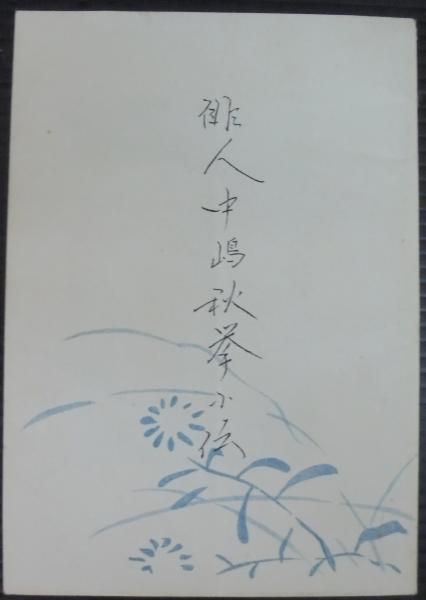 俳人中嶋秋挙小伝